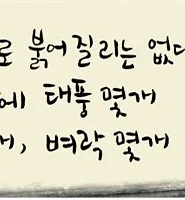 로 붉어질리는 없다
에 태풍 몇개
개, 벼락 몇개